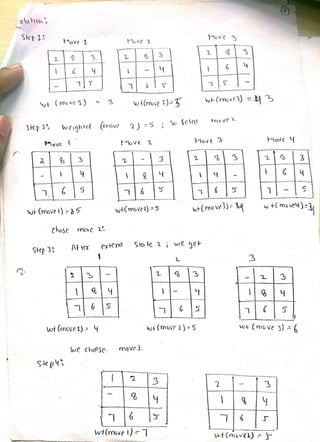 (2)
Solution:
Step 1:
Move 1 Move 2 Move 3
2 8 3 2 8 3 2 8 3
1 6 4 1 - 4 1 6 4
- 7 5 7 6 5 7 5 -
wt (move 1) = 3 wt (move 2) = 5 wt (move 3) = 3
Step 2: weighted (move 2) = 5, So move 2
Move 1 Move 2 Move 3 Move 4
2 8 3 2 - 3 2 8 3 2 8 3
- 1 4 1 8 4 1 4 - 1 6 4
7 6 5 7 6 5 7 6 5 7 - 5
wt (move 1) = 5 wt (move 2) = 5 wt (move 3) = wt (move 4) =
Chose move 2:
Step 3: After extend State 2, we get
1 2 3
2 3 - 2 8 3 - 2 3
1 8 4 1 - 4 1 8 4
7 6 5 7 6 5 7 6 5
wt (move 1) = 4 wt (move 2) = 5 wt (move 3) = 6
We choose move 3.
Step 4:
1 2 3 2 - 3
- 8 4 1 8 4
7 6 5 7 6 5
wt (move 1) = 7 wt (move 2) = 5